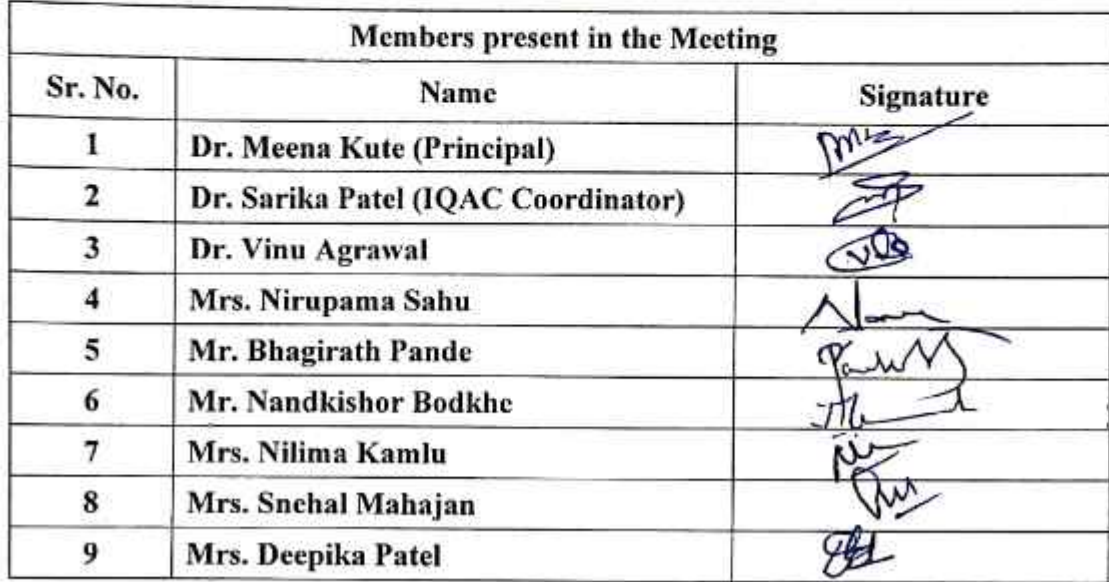 Members present in the Meeting
Sr. No. Name Signature
1 Dr. Meena Kute (Principal)
2 Dr. Sarika Patel (IQAC Coordinator)
3 Dr. Vinu Agrawal
4 Mrs. Nirupama Sahu
5 Mr. Bhagirath Pande
6 Mr. Nandkishor Bodkhe
7 Mrs. Nilima Kamlu
8 Mrs. Snehal Mahajan
9 Mrs. Deepika Patel